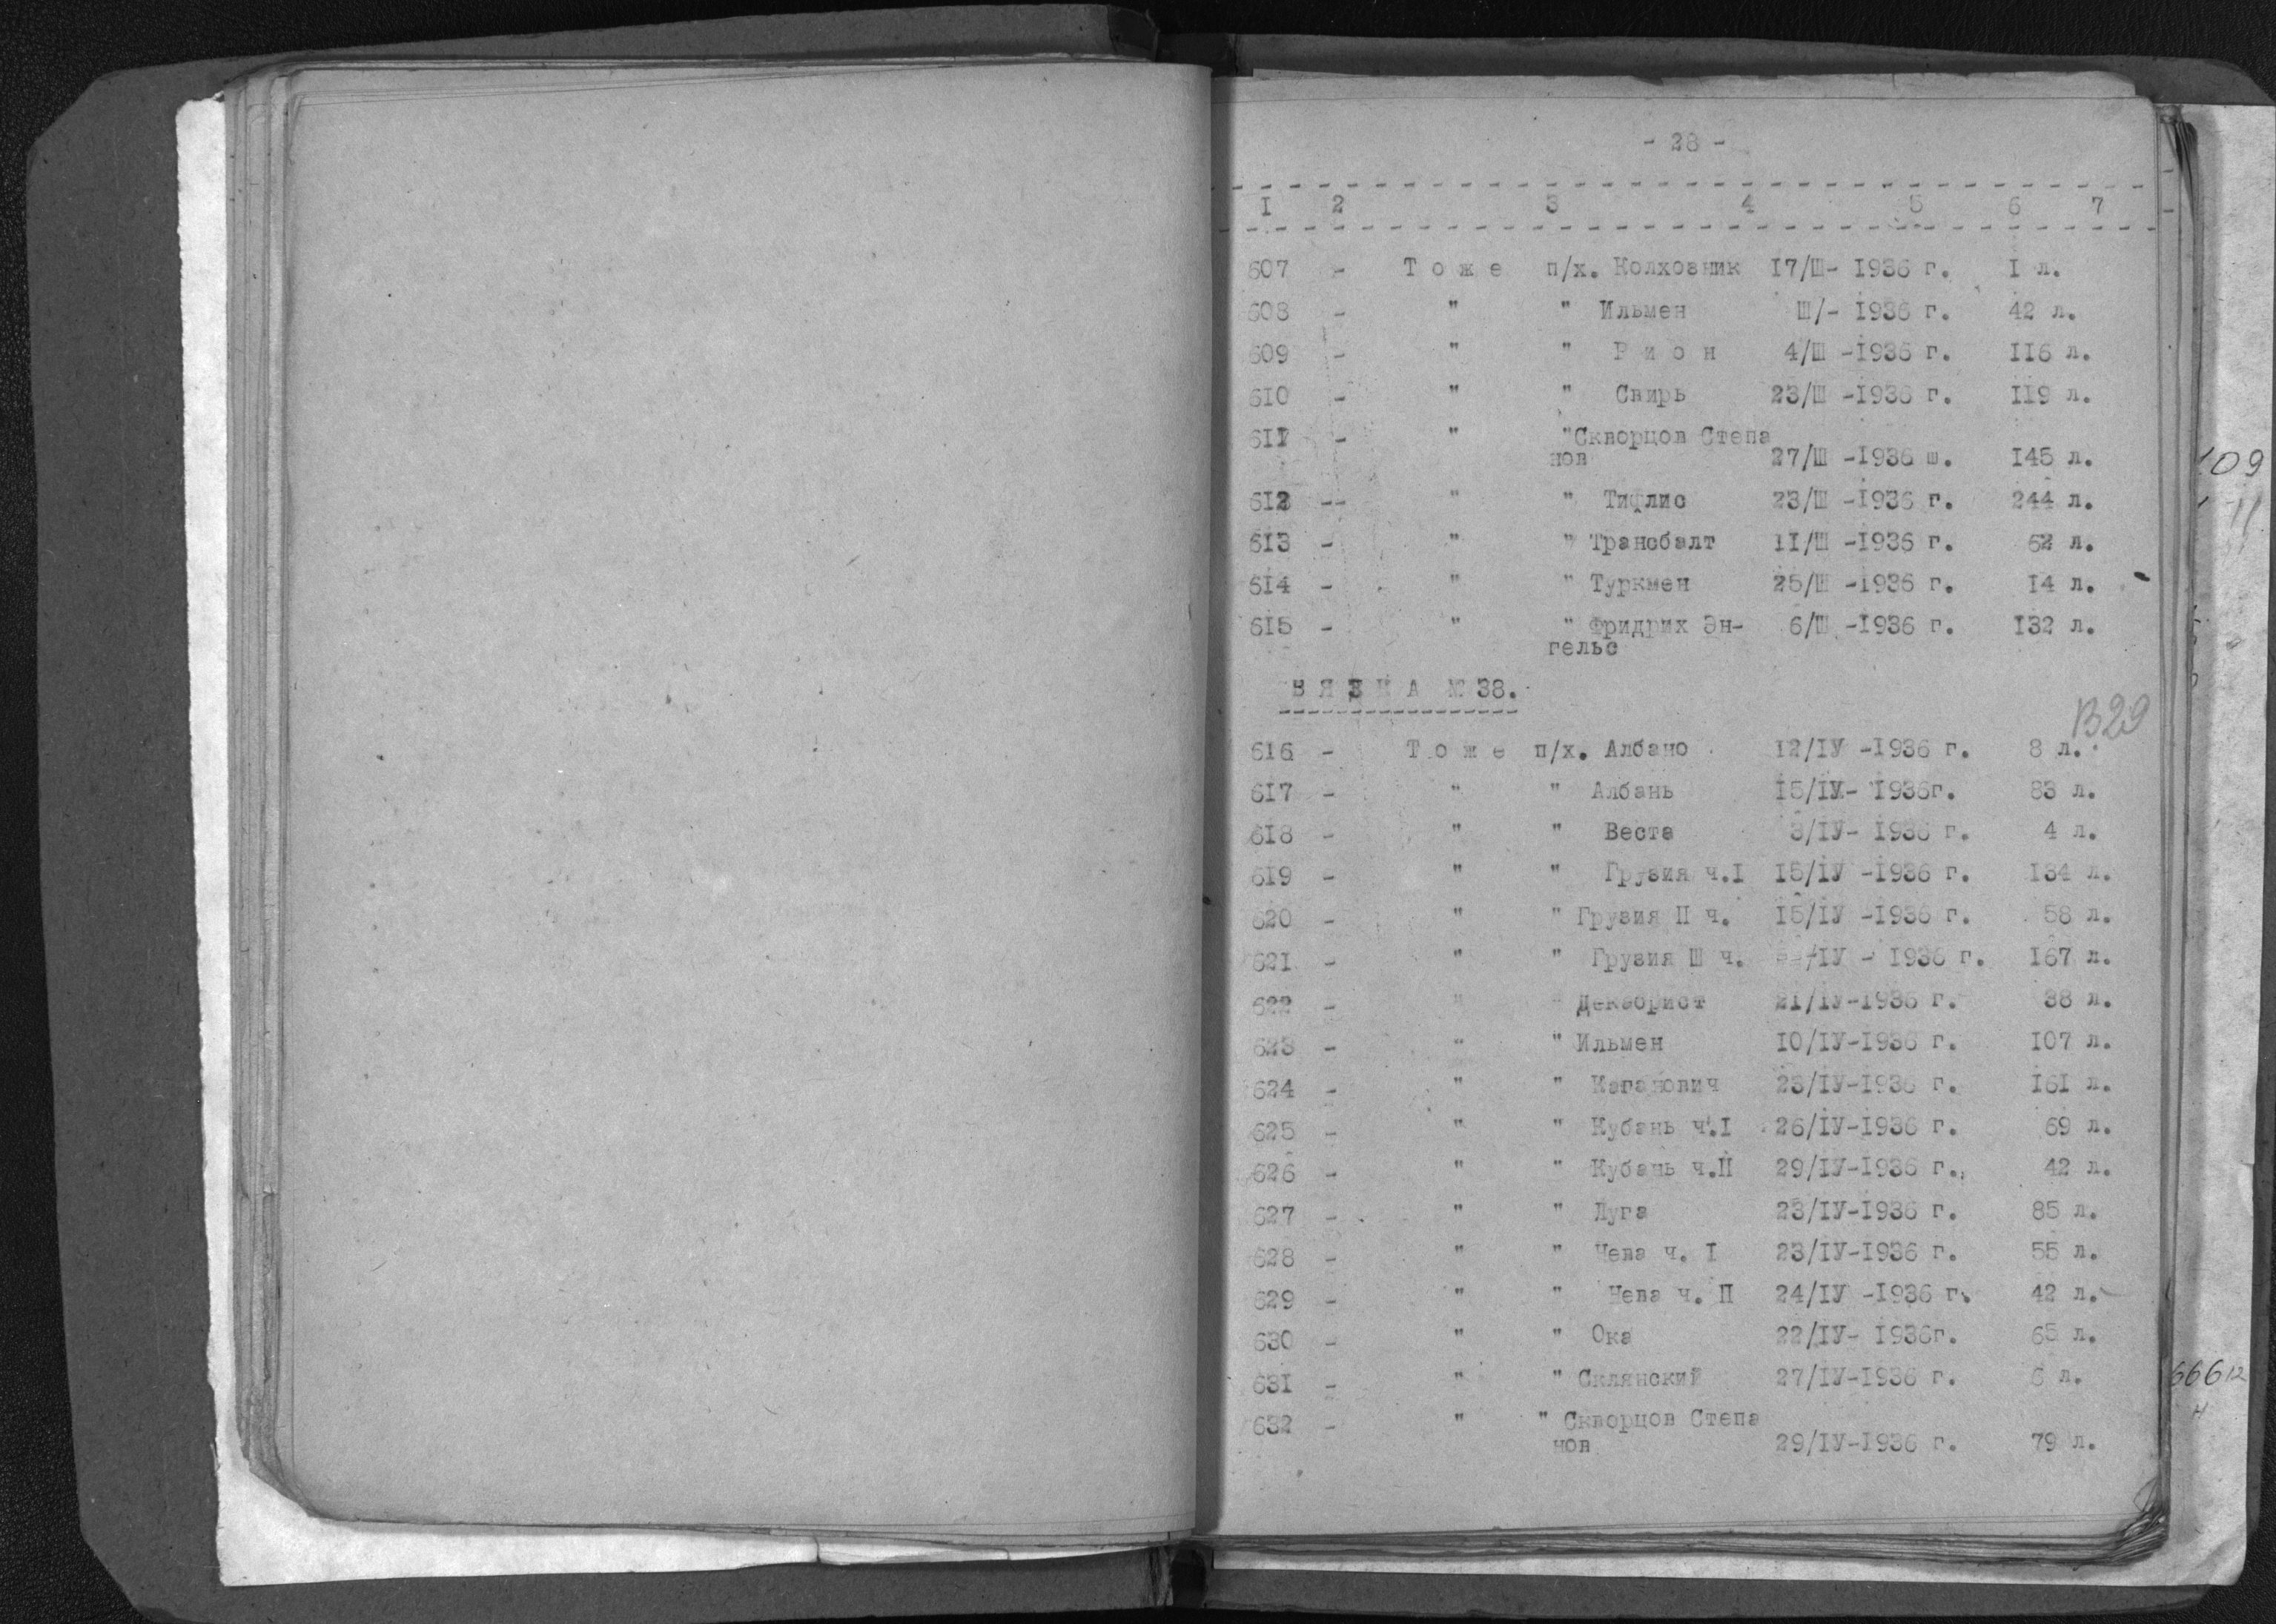 - 28 -
I 2 3 4 5 6 7
607 - Т о ж е п/х. Колхозник 17/Ш- 1936 г. I л.
608 - " " Ильмен Ш/- 1936 г. 42 л.
609 - " " Р и о н 4/Ш -1936 г. 116 л.
610 - " " Свирь 23/Ш -1936 г. 119 л.
611 - " "Скворцов Степа
нов 27/Ш -1936 ш. 145 л.
612 -- " " Тифлис 23/Ш -1936 г. 244 л.
613 - " " Трансбалт 11/Ш -1936 г. 62 л.
614 - " " Туркмен 25/Ш -1936 г. 14 л.
615 - " " Фридрих Эн- 6/Ш -1936 г. 132 л.
гельс
В Я З К А № 38.
В29
616 - Т о ж е п/х. Албано 12/IУ -1936 г. 8 л.
617 - " " Албань 15/IУ- 1936г. 83 л.
618 - " " Веста 3/IУ- 1936 г. 4 л.
619 - " " Грузия ч.I 15/IУ -1936 г. 134 л.
620 - " " Грузия П ч. 15/IУ -1936 г. 58 л.
621 - " " Грузия Ш ч. /IУ - 1936 г. 167 л.
622 - " " Декабрист 21/IУ-1936 г. 38 л.
623 - " " Ильмен 10/IУ-1936 г. 107 л.
624 - " " Каганович 23/IУ-1936 г. 161 л.
625 - " " Кубань ч.I 26/IУ-1936 г. 69 л.
626 - " " Кубань ч.П 29/IУ-1936 г. 42 л.
627 - " " Луга 23/IУ-1936 г. 85 л.
628 - " " Нева ч. I 23/IУ-1936 г. 55 л.
629 - " " Нева ч. П 24/IУ -1936 г. 42 л.
630 - " " Ока 22/IУ- 1936г. 65 л.
631 - " " Склянский 27/IУ-1936 г. 6 л.
632 - " " Скворцов Степа
нов 29/IУ-1936 г. 79 л.
109